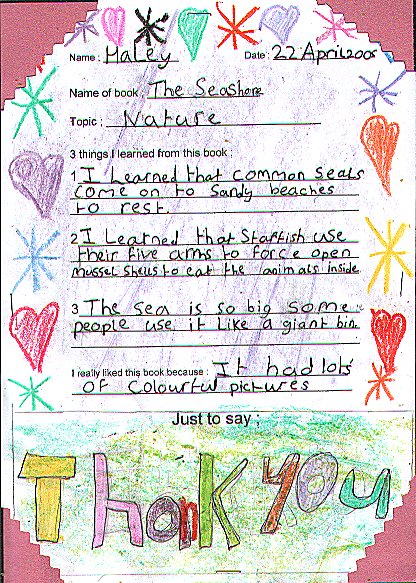 Name : Haley Date : 22 April 2005
Name of book : The Seashore
Topic : Nature
3 things I learned from this book :
1 I Learned that common seals
come on to Sandy beaches
to rest.
2 I Learned that Starfish use
their five arms to force open
mussel shells to eat the animals inside
3 The sea is so big some
people use it like a giant bin.
I really liked this book because : It had lots
of colourful pictures
Just to say ;
Thank you